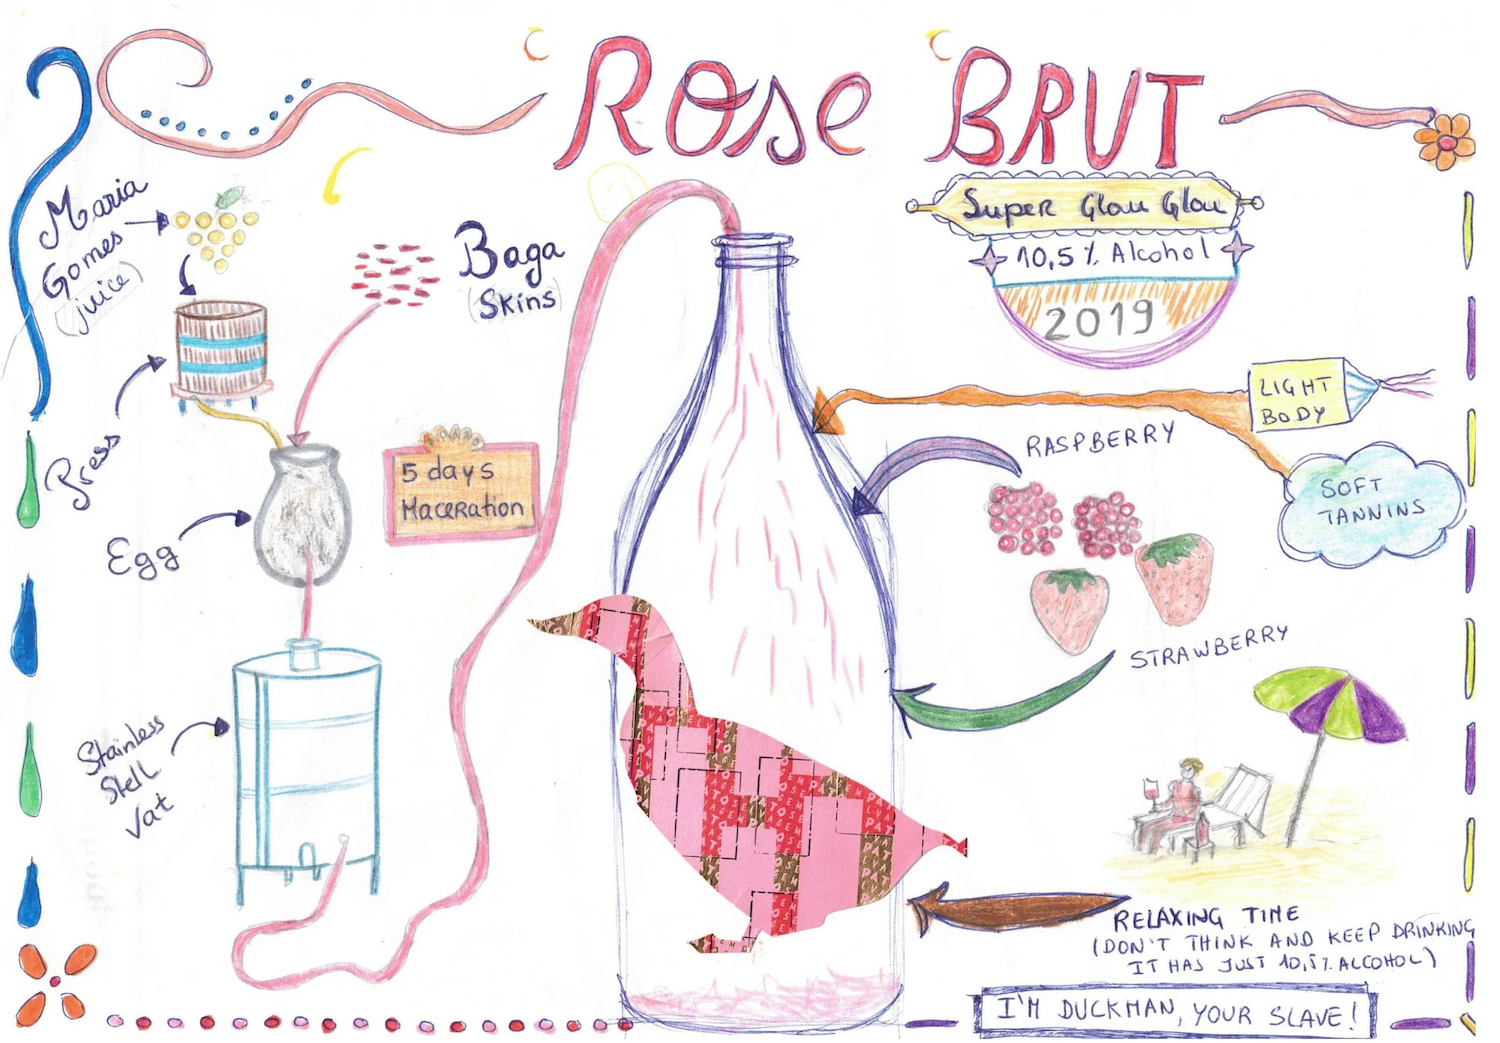 Rose BRUT
Super Glou Glou
10,5 % Alcohol
2019
Maria
Gomes
(juice)
Baga
(Skins)
Press
5 days
Maceration
Egg
Stainless
Stell
Vat
LIGHT
BODY
SOFT
TANNINS
RASPBERRY
STRAWBERRY
RELAXING TIME
(DON'T THINK AND KEEP DRINKING
IT HAS JUST 10,5% ALCOHOL)
I'M DUCKMAN, YOUR SLAVE!